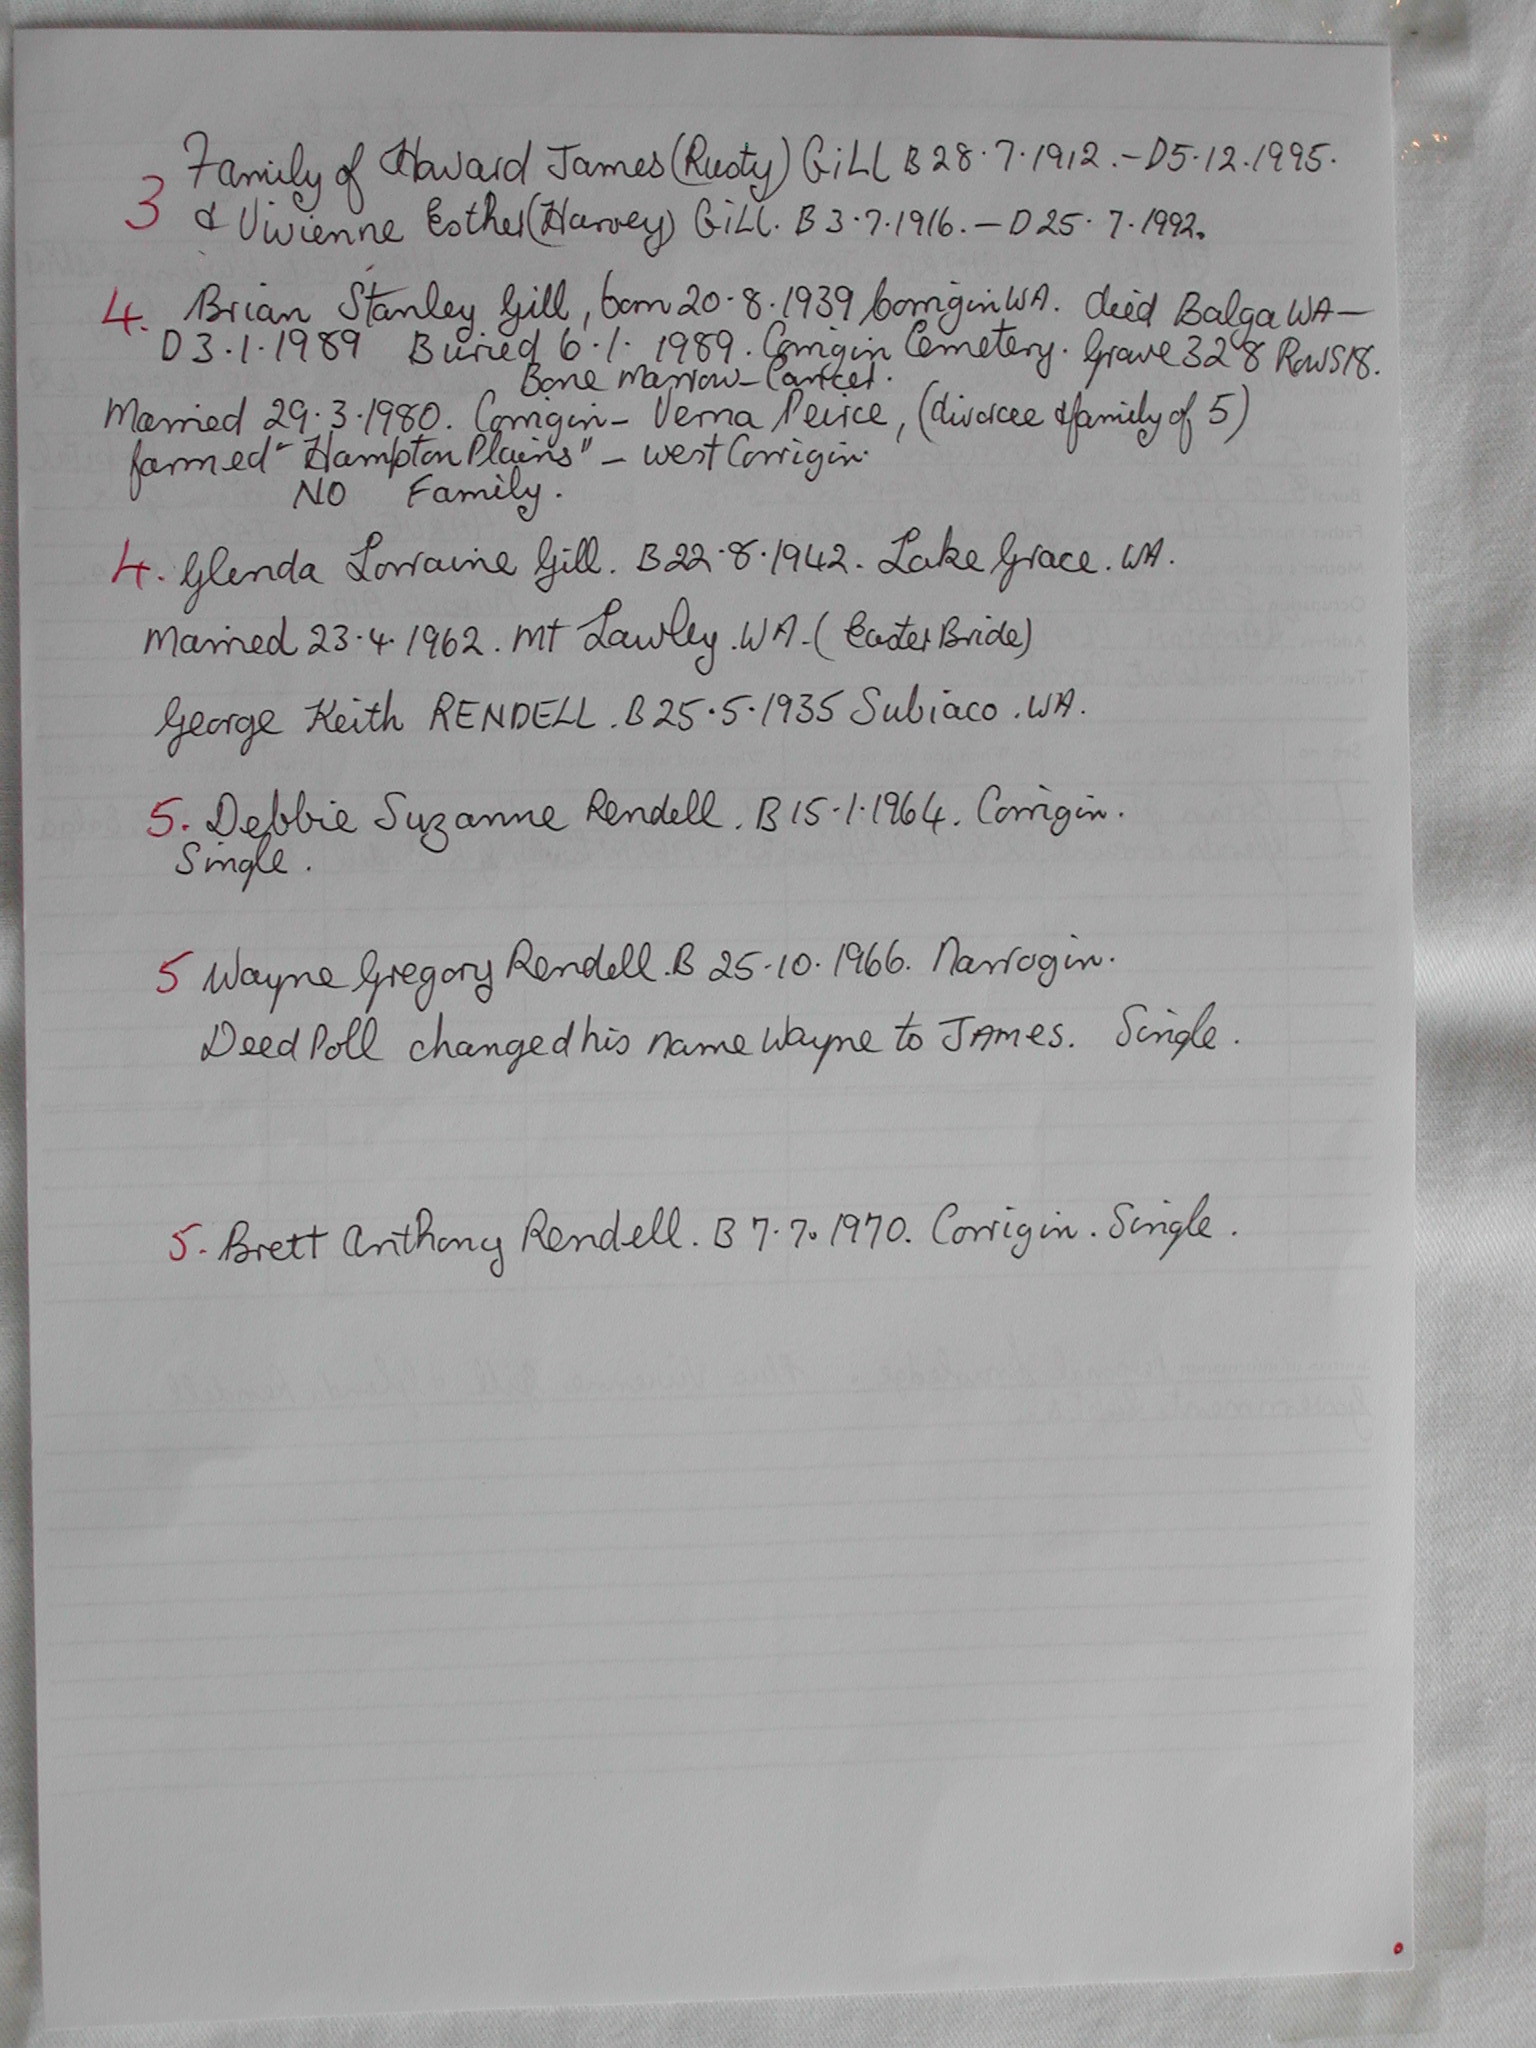 Family of Howard James (Rusty) GiLL B 28.7.1912. - D 5.12.1995.
3 & Vivienne Esther (Harvey) GiLL. B 3.7.1916. - D 25.7.1992.
4. Brian Stanley Gill, born 20.8.1939 Corrigin WA. died Balga WA -
D 3.1.1989 Buried 6.1.1989. Corrigin Cemetery. Grave 328 Row S18.
Bone Marrow - Cancer.
Married 29.3.1980. Corrigin - Verna Peirce, (divorcee & family of 5)
farmed "Hampton Plains" - west Corrigin.
NO Family.
4. Glenda Lorraine Gill. B 22.8.1942. Lake Grace. WA.
Married 23.4.1962. Mt Lawley. WA. (Easter Bride)
George Keith RENDELL. B 25.5.1935 Subiaco. WA.
5. Debbie Suzanne Rendell. B 15.1.1964. Corrigin.
Single.
5 Wayne Gregory Rendell. B 25.10.1966. Narrogin.
Deed Poll changed his name Wayne to JAMES. Single.
5. Brett Anthony Rendell. B 7.7.1970. Corrigin. Single.